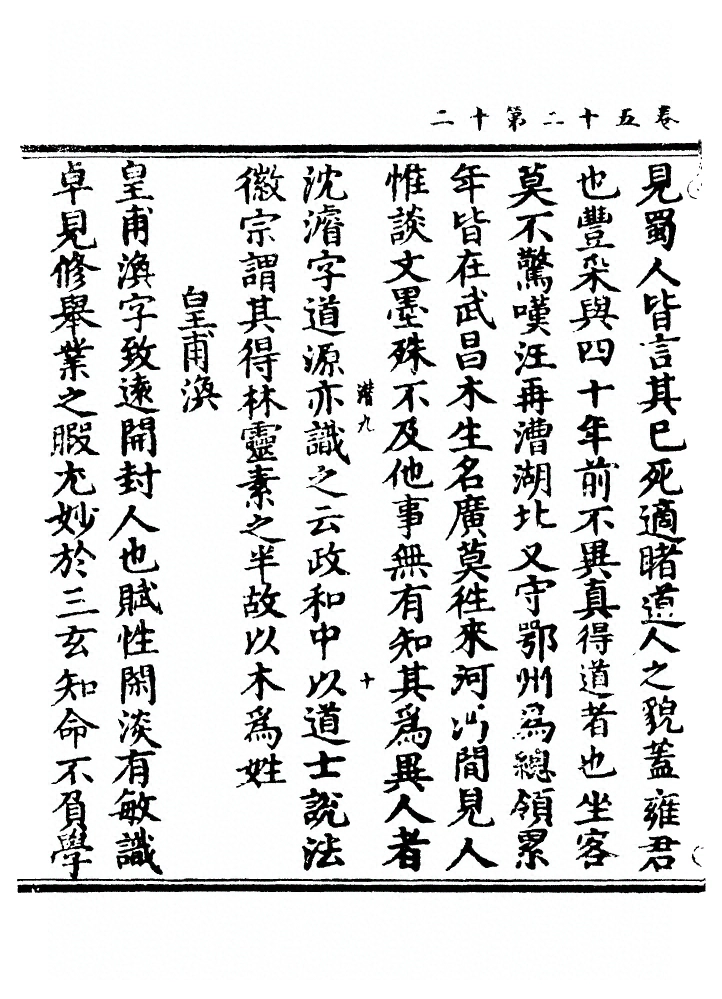 卷五十二第十二
見蜀人皆言其已死適睹道人之貌蓋雍君
也豐采與四十年前不異真得道者也坐客
莫不驚嘆汪再漕湖北又守鄂州為總領累
年皆在武昌木生名廣莫徃來河沔間見人
惟談文墨殊不及他事無有知其為異人者
潛九
十
沈濬字道源亦識之云政和中以道士說法
徽宗謂其得林靈素之半故以木為姓
皇甫渙
皇甫渙字致遠開封人也賦性閑淡有敏識
卓見修舉業之暇尤妙於三玄知命不負學